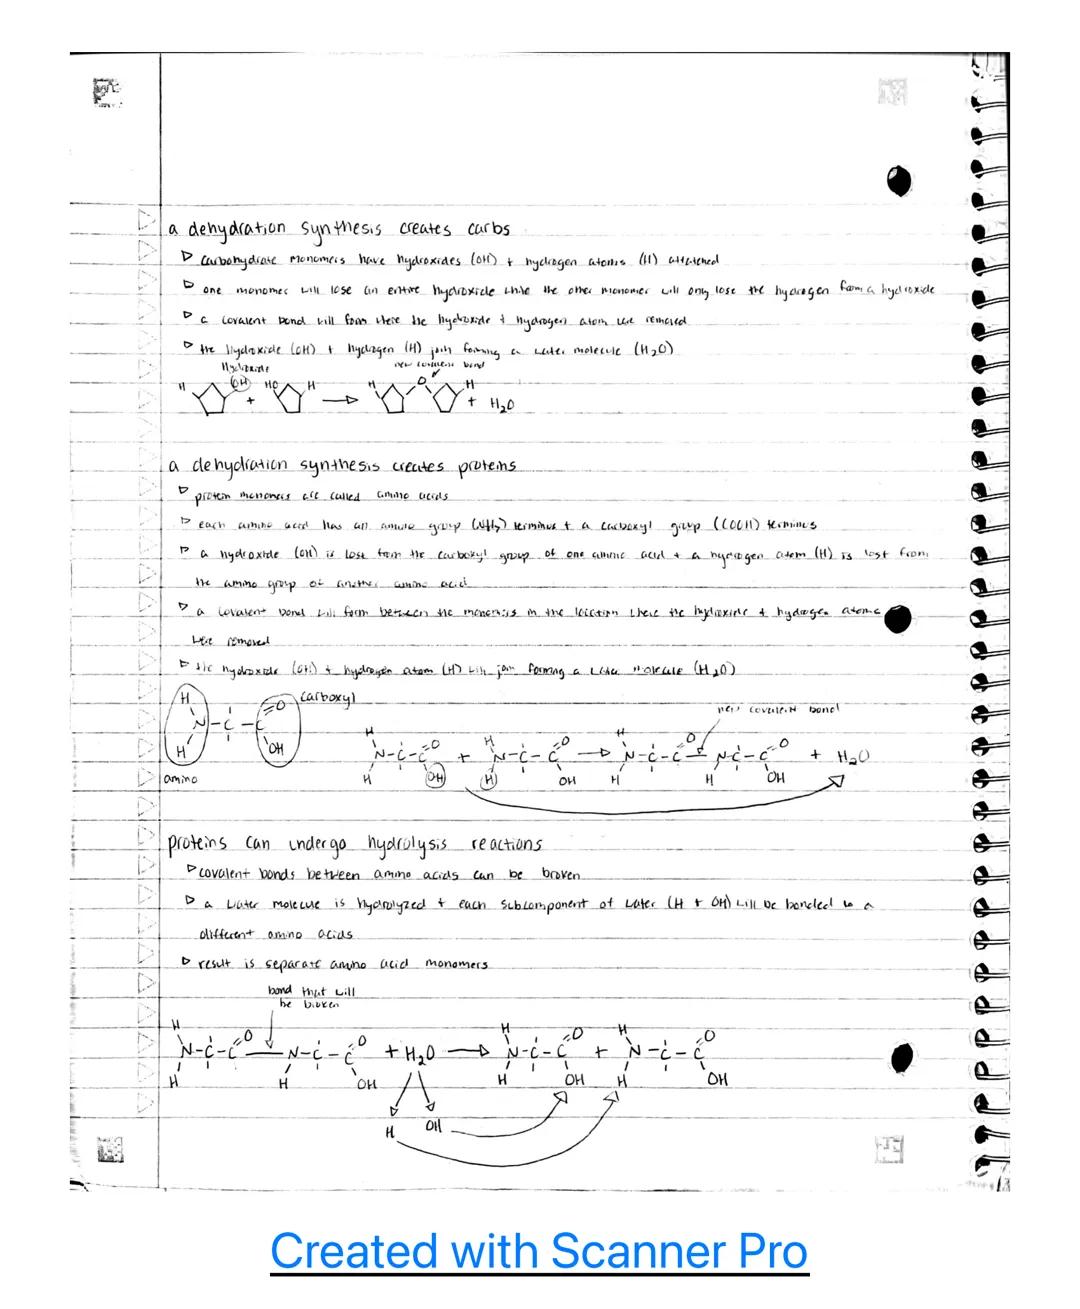 a dehydration synthesis creates carbs
▷ carbohydrate monomers have hydroxides (OH) + hydrogen atoms (H) attatched
▷ one monomer will lose an entire hydroxide while the other monomer will only lose the hydrogen from a hydroxide
▷ a covalent bond will form where the hydroxide + hydrogen atom were removed
▷ the hydroxide (OH) + hydrogen (H) join forming a water molecule (H₂O)
hydroxide new covalent bond
H OH HO H H O H
+ → + H₂O
a dehydration synthesis creates proteins
▷ protein monomers are called amino acids
▷ each amino acid has an amino group (NH₂) terminus + a carboxyl group (COOH) terminus
▷ a hydroxide (OH) is lost from the carboxyl group of one amino acid + a hydrogen atom (H) is lost from
the amino group of another amino acid
▷ a covalent bond will form between the monomers in the location where the hydroxide + hydrogen atoms
were removed
▷ the hydroxide (OH) + hydrogen atom (H) will join forming a water molecule (H₂O)
H O carboxyl
new covalent bond
N-C-C
H OH
amino
H O H O H O O
N-C-C + N-C-C → N-C-C - N-C-C + H₂O
H OH H OH H H OH
proteins can undergo hydrolysis reactions
▷ covalent bonds between amino acids can be broken
▷ a water molecule is hydrolyzed + each subcomponent of water (H + OH) will be bonded to a
different amino acids
▷ result is separate amino acid monomers
bond that will
be broken
H O O H O H O
N-C-C - N-C-C + H₂O → N-C-C + N-C-C
H H OH H OH H OH
H OH
Created with Scanner Pro